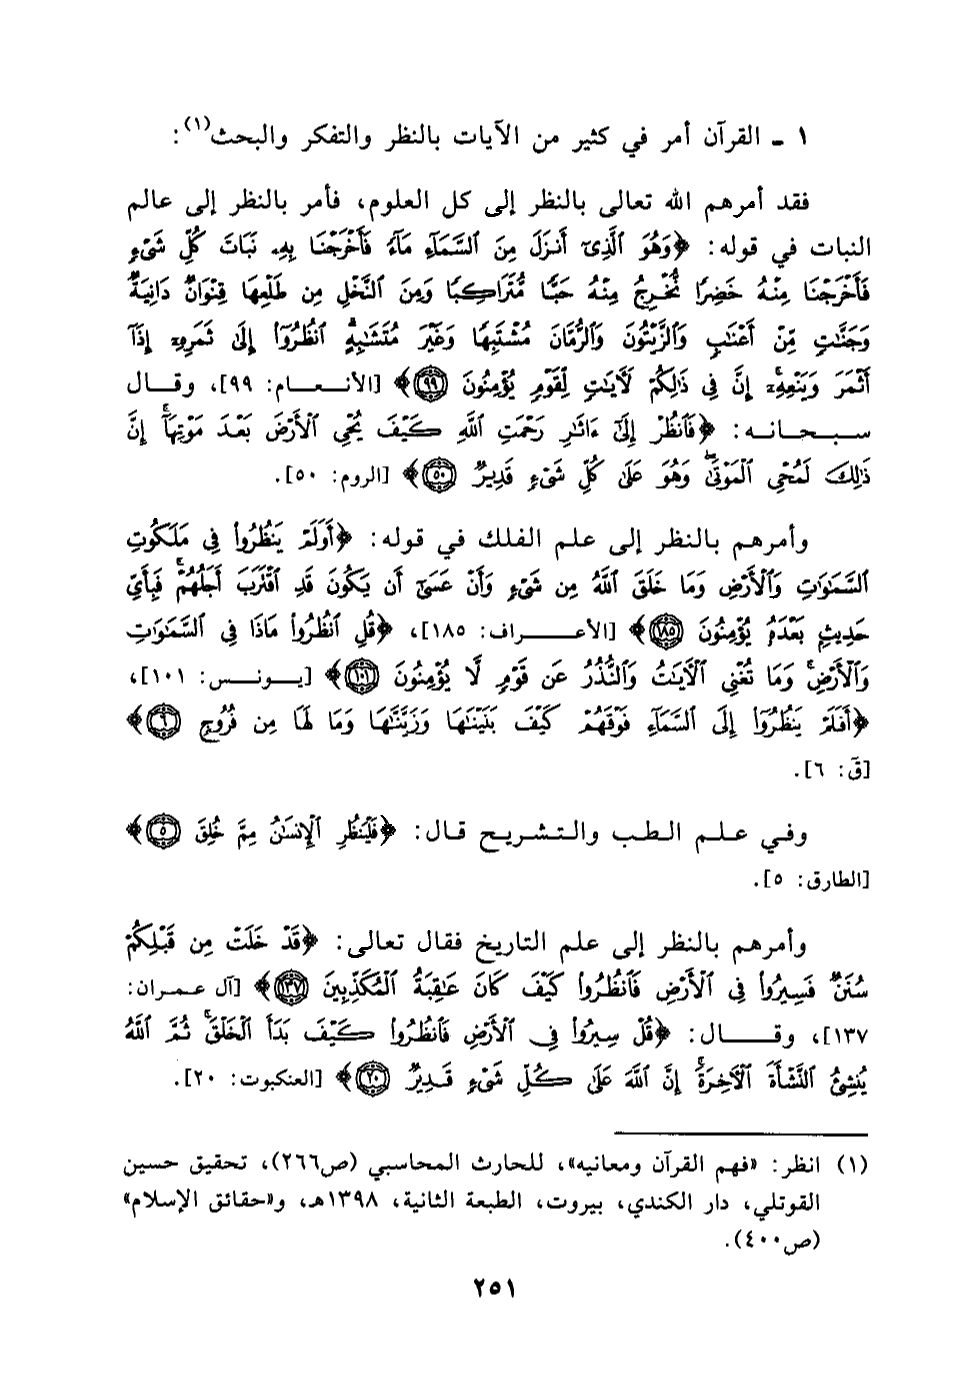 ١ - القرآن أمر في كثير من الآيات بالنظر والتفكر والبحث(١):
فقد أمرهم الله تعالى بالنظر إلى كل العلوم، فأمر بالنظر إلى عالم
النبات في قوله: ﴿وَهُوَ ٱلَّذِىٓ أَنزَلَ مِنَ ٱلسَّمَآءِ مَآءً فَأَخْرَجْنَا بِهِۦ نَبَاتَ كُلِّ شَىْءٍ
فَأَخْرَجْنَا مِنْهُ خَضِرًا نُّخْرِجُ مِنْهُ حَبًّا مُّتَرَاكِبًا وَمِنَ ٱلنَّخْلِ مِن طَلْعِهَا قِنْوَانٌ دَانِيَةٌ
وَجَنَّـٰتٍ مِّنْ أَعْنَابٍ وَٱلزَّيْتُونَ وَٱلرُّمَّانَ مُشْتَبِهًا وَغَيْرَ مُتَشَـٰبِهٍ ٱنظُرُوٓا۟ إِلَىٰ ثَمَرِهِۦٓ إِذَآ
أَثْمَرَ وَيَنْعِهِۦٓ إِنَّ فِى ذَٰلِكُمْ لَـَٔايَـٰتٍ لِّقَوْمٍ يُؤْمِنُونَ ﴿٩٩﴾﴾ [الأنعام: ٩٩]، وقال
سبحانه: ﴿فَٱنظُرْ إِلَىٰٓ ءَاثَـٰرِ رَحْمَتِ ٱللَّهِ كَيْفَ يُحْىِ ٱلْأَرْضَ بَعْدَ مَوْتِهَآ إِنَّ
ذَٰلِكَ لَمُحْىِ ٱلْمَوْتَىٰ وَهُوَ عَلَىٰ كُلِّ شَىْءٍ قَدِيرٌ ﴿٥٠﴾﴾ [الروم: ٥٠].
وأمرهم بالنظر إلى علم الفلك في قوله: ﴿أَوَلَمْ يَنظُرُوا۟ فِى مَلَكُوتِ
ٱلسَّمَـٰوَٰتِ وَٱلْأَرْضِ وَمَا خَلَقَ ٱللَّهُ مِن شَىْءٍ وَأَنْ عَسَىٰٓ أَن يَكُونَ قَدِ ٱقْتَرَبَ أَجَلُهُمْ فَبِأَىِّ
حَدِيثٍۭ بَعْدَهُۥ يُؤْمِنُونَ ﴿١٨٥﴾﴾ [الأعراف: ١٨٥]، ﴿قُلِ ٱنظُرُوا۟ مَاذَا فِى ٱلسَّمَـٰوَٰتِ
وَٱلْأَرْضِ وَمَا تُغْنِى ٱلْـَٔايَـٰتُ وَٱلنُّذُرُ عَن قَوْمٍ لَّا يُؤْمِنُونَ ﴿١٠١﴾﴾ [يونس: ١٠١]،
﴿أَفَلَمْ يَنظُرُوٓا۟ إِلَى ٱلسَّمَآءِ فَوْقَهُمْ كَيْفَ بَنَيْنَـٰهَا وَزَيَّنَّـٰهَا وَمَا لَهَا مِن فُرُوجٍ ﴿٦﴾﴾
[قَ: ٦].
وفي علم الطب والتشريح قال: ﴿فَلْيَنظُرِ ٱلْإِنسَـٰنُ مِمَّ خُلِقَ ﴿٥﴾﴾
[الطارق: ٥].
وأمرهم بالنظر إلى علم التاريخ فقال تعالى: ﴿قَدْ خَلَتْ مِن قَبْلِكُمْ
سُنَنٌ فَسِيرُوا۟ فِى ٱلْأَرْضِ فَٱنظُرُوا۟ كَيْفَ كَانَ عَـٰقِبَةُ ٱلْمُكَذِّبِينَ ﴿١٣٧﴾﴾ [آل عمران:
١٣٧]، وقال: ﴿قُلْ سِيرُوا۟ فِى ٱلْأَرْضِ فَٱنظُرُوا۟ كَيْفَ بَدَأَ ٱلْخَلْقَ ثُمَّ ٱللَّهُ
يُنشِئُ ٱلنَّشْأَةَ ٱلْـَٔاخِرَةَ إِنَّ ٱللَّهَ عَلَىٰ كُلِّ شَىْءٍ قَدِيرٌ ﴿٢٠﴾﴾ [العنكبوت: ٢٠].
(١) انظر: «فهم القرآن ومعانيه»، للحارث المحاسبي (ص٢٦٦)، تحقيق حسين
القوتلي، دار الكندي، بيروت، الطبعة الثانية، ١٣٩٨هـ، و«حقائق الإسلام»
(ص٤٠٠).
٢٥١